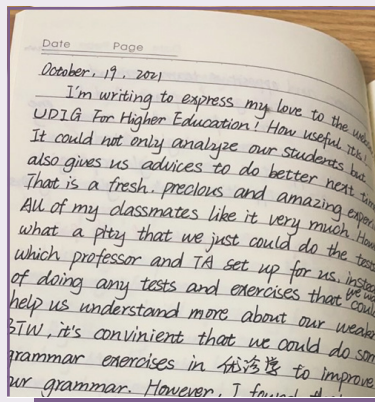 Date Page
October, 19, 2021
I'm writing to express my love to the
UDIG For Higher Education! How useful it is!
It could not only analyze our students but
also gives us advices to do better next time
That is a fresh, precious and amazing
All of my classmates like it very much.
what a pity that we just could do the tests
which professor and TA set up for us,
of doing any tests and exercises that we
help us understand more about our
BTW, it's convinient that we could do
grammar exercises in 优诊学 to improve
our grammar. However, I found